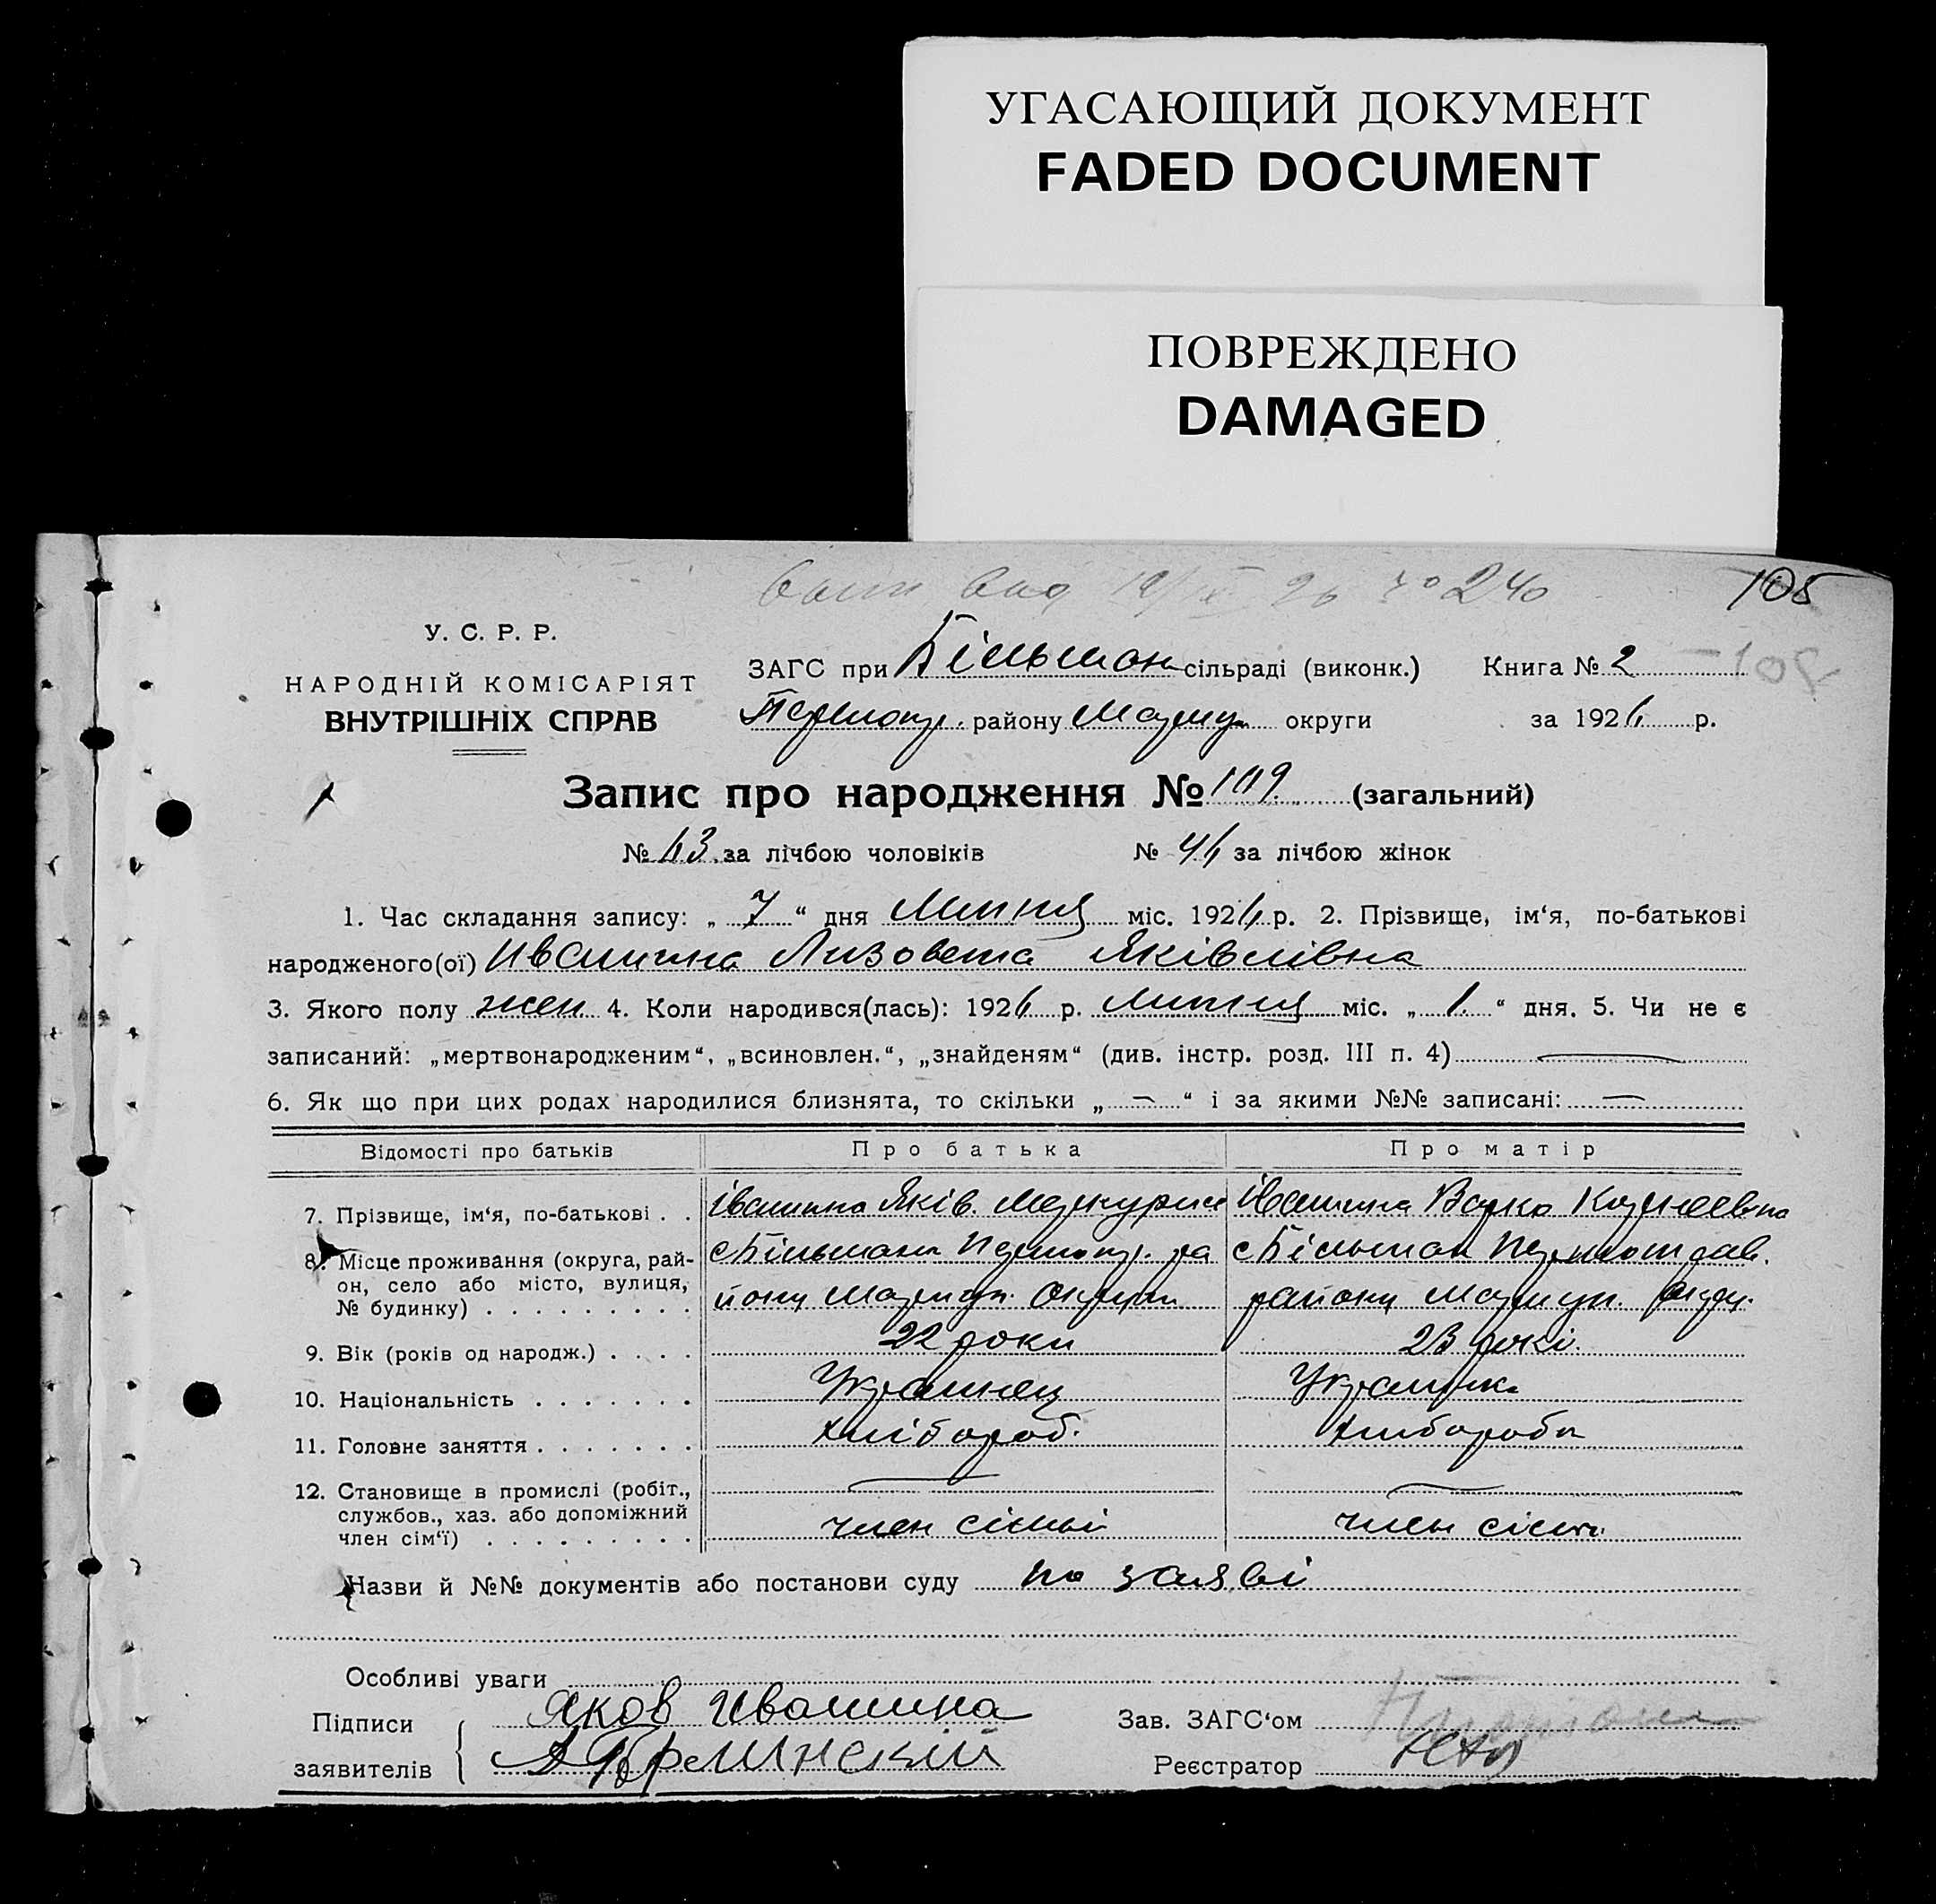 УГАСАЮЩИЙ ДОКУМЕНТ
FADED DOCUMENT
ПОВРЕЖДЕНО
DAMAGED
240
105
У. С. Р. Р.
НАРОДНІЙ КОМІСАРІЯТ
ВНУТРІШНІХ СПРАВ
ЗАГС при Більман сільраді (виконк.) Книга № 2
105
району округи за 1926 р.
Запис про народження № 109 (загальний)
№ 63 за лічбою чоловіків № 46 за лічбою жінок
1. Час складання запису: „ 7 “ дня Липня міс. 1926 р. 2. Прізвище, ім‘я, по-батькові
народженого(ої) Ивашина Лизовета Яківлівна
3. Якого полу жен 4. Коли народився(лась): 1926 р. липня міс. „ 1. “ дня. 5. Чи не є
записаний: „мертвонародженим“, „всиновлен.“, „знайденям“ (див. інстр. розд. III п. 4) —
6. Як що при цих родах народилися близнята, то скільки „ — “ і за якими №№ записані: —
Відомості про батьків Про батька Про матір
7. Прізвище, ім‘я, по-батькові . . Івашина Яків Івашина Варка
8. Місце проживання (округа, рай-
он, село або місто, вулиця,
№ будинку) . . . . . . . . .
с Більман
с Більман
йону Округи
району
9. Вік (років од народж.) . . . . 22 роки 23 рокі.
10. Національність . . . . . . . Украинец Украинка
11. Головне заняття . . . . . . . хлібороб. хлибороби
12. Становище в промислі (робіт.,
службов., хаз. або допоміжний
член сім‘ї) . . . . . . . . .
— —
член сімьі член сімьі
Назви й №№ документів або постанови суду по заяві
Особливі уваги
Підписи Яков Ивашина Зав. ЗАГС‘ом
заявителів Реєстратор